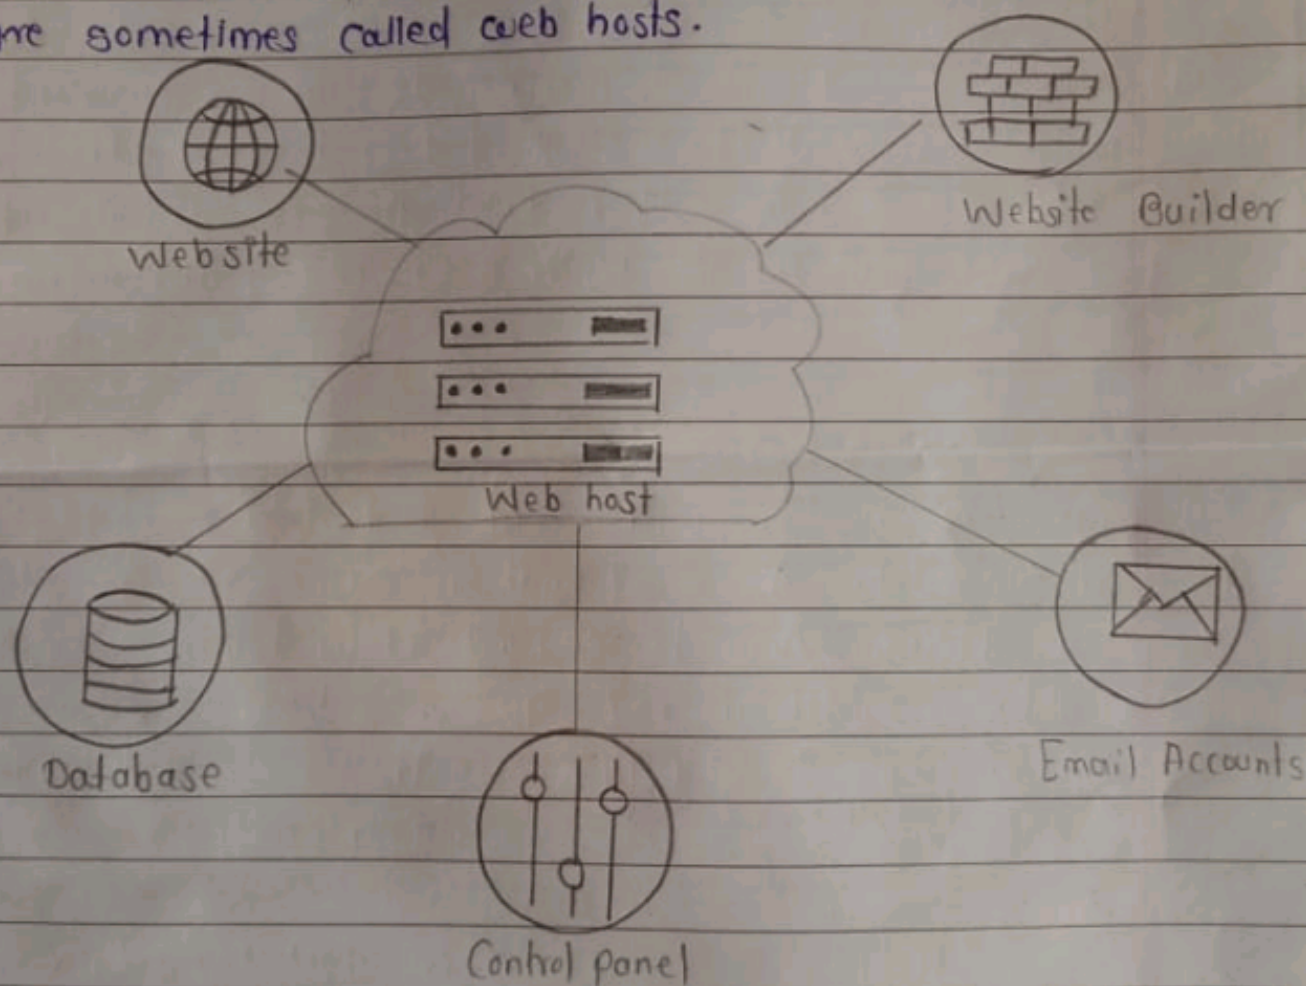 are sometimes called web hosts.
Website
Website Builder
Web host
Database
Email Accounts
Control panel